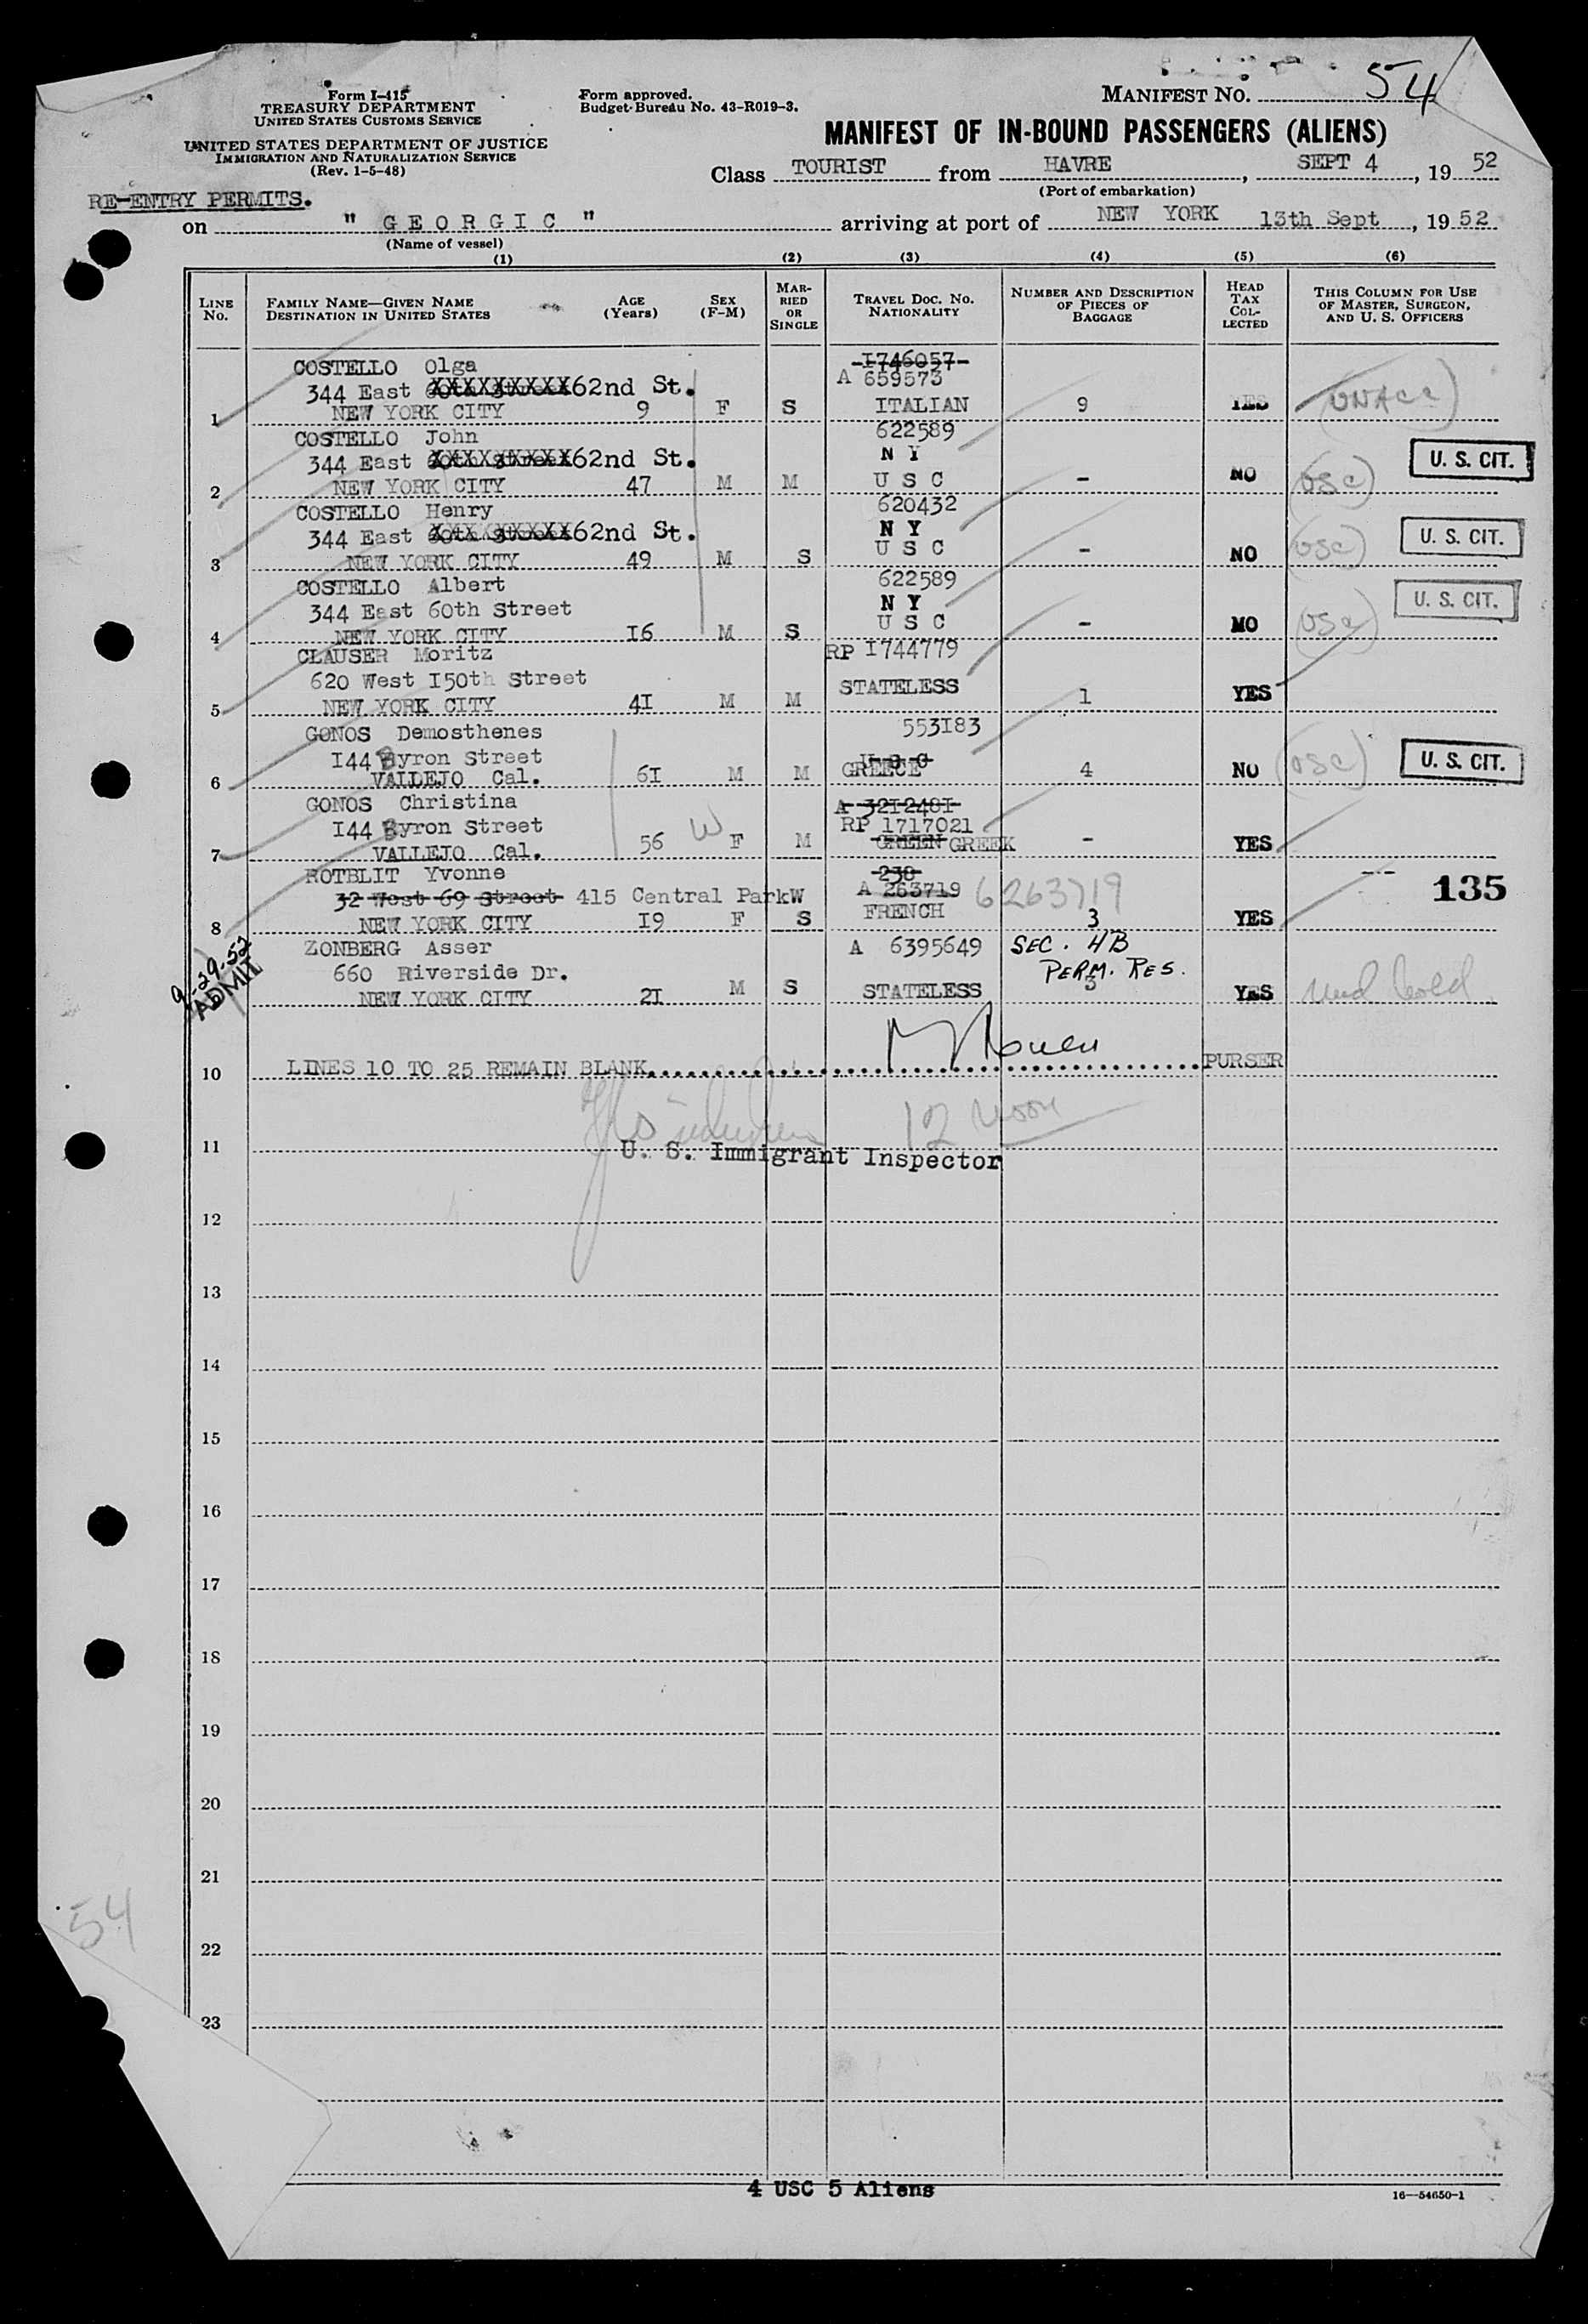 Form I-415
TREASURY DEPARTMENT
UNITED STATES CUSTOMS SERVICE
UNITED STATES DEPARTMENT OF JUSTICE
IMMIGRATION AND NATURALIZATION SERVICE
(Rev. 1-5-48)
Form approved.
Budget Bureau No. 43-R019-3.
MANIFEST NO. 54
MANIFEST OF IN-BOUND PASSENGERS (ALIENS)
Class TOURIST from HAVRE, SEPT 4, 19 52
(Port of embarkation)
RE-ENTRY PERMITS.
on " G E O R G I C " arriving at port of NEW YORK 13th Sept, 19 52
(Name of vessel)
(1) (2) (3) (4) (5) (6)
LINE No.
FAMILY NAME—GIVEN NAME
DESTINATION IN UNITED STATES
AGE (Years)
SEX (F-M)
MARRIED OR SINGLE
TRAVEL DOC. NO. NATIONALITY
NUMBER AND DESCRIPTION OF PIECES OF BAGGAGE
HEAD TAX COLLECTED
THIS COLUMN FOR USE OF MASTER, SURGEON, AND U. S. OFFICERS
COSTELLO Olga I746057
344 East 60th Street 62nd St. A 659573
1 NEW YORK CITY 9 F S ITALIAN 9 YES UNACC
COSTELLO John 622589
344 East 60th Street 62nd St. N Y U. S. CIT.
2 NEW YORK CITY 47 M M U S C - NO USC
COSTELLO Henry 620432
344 East 60th Street 62nd St. N Y U. S. CIT.
3 NEW YORK CITY 49 M S U S C - NO USC
COSTELLO Albert 622589
344 East 60th Street N Y U. S. CIT.
4 NEW YORK CITY I6 M S U S C - NO USC
CLAUSER Moritz RP I744779
620 West I50th Street
5 NEW YORK CITY 4I M M STATELESS 1 YES
GONOS Demosthenes 553I83
I44 Byron Street U S C U. S. CIT.
6 VALLEJO Cal. 6I M M GREECE 4 NO USC
GONOS Christina A 32I248I
I44 Byron Street RP 1717021
7 VALLEJO Cal. 56 W F M GREEN GREEK - YES
ROTBLIT Yvonne 238
32 West 69 Street 415 Central ParkW A 263719 6263719 135
8 NEW YORK CITY I9 F S FRENCH 3 YES
9-29-52
ADMIT
ZONBERG Asser A 6395649 SEC. 4B
660 Riverside Dr. PERM. RES.
NEW YORK CITY 2I M S STATELESS YES Med hold
10 LINES 10 TO 25 REMAIN BLANK PURSER
12 noon
11 U. S. Immigrant Inspector
12
13
14
15
16
17
18
19
20
21
54
22
23
4 USC 5 Aliens
16—54650-1